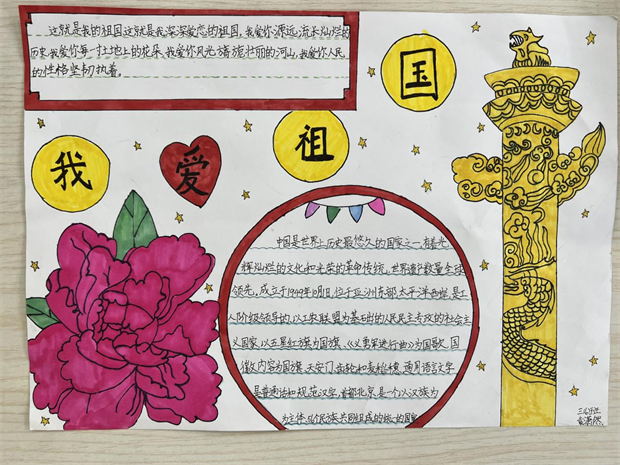 这就是我的祖国,这就是我深深爱恋的祖国。我爱你源远流长灿烂的
历史,我爱你每一寸土地上的花朵,我爱你风光旖旎壮丽的河山,我爱你人民
的性格坚韧执着。
我爱祖国
中国是世界上历史最悠久的国家之一,有着光
辉灿烂的文化和光荣的革命传统,世界遗产数量全球
领先,成立于1949年10月1日,位于亚洲东部,太平洋西岸,是工
人阶级领导的,以工农联盟为基础的人民民主专政的社会主
义国家,以五星红旗为国旗,《义勇军进行曲》为国歌,国
徽内容为国旗、天安门、齿轮和麦稻穗,通用语言文字
是普通话和规范汉字,首都北京,是一个以汉族为
为主体、
民族共同组成的统一的国家